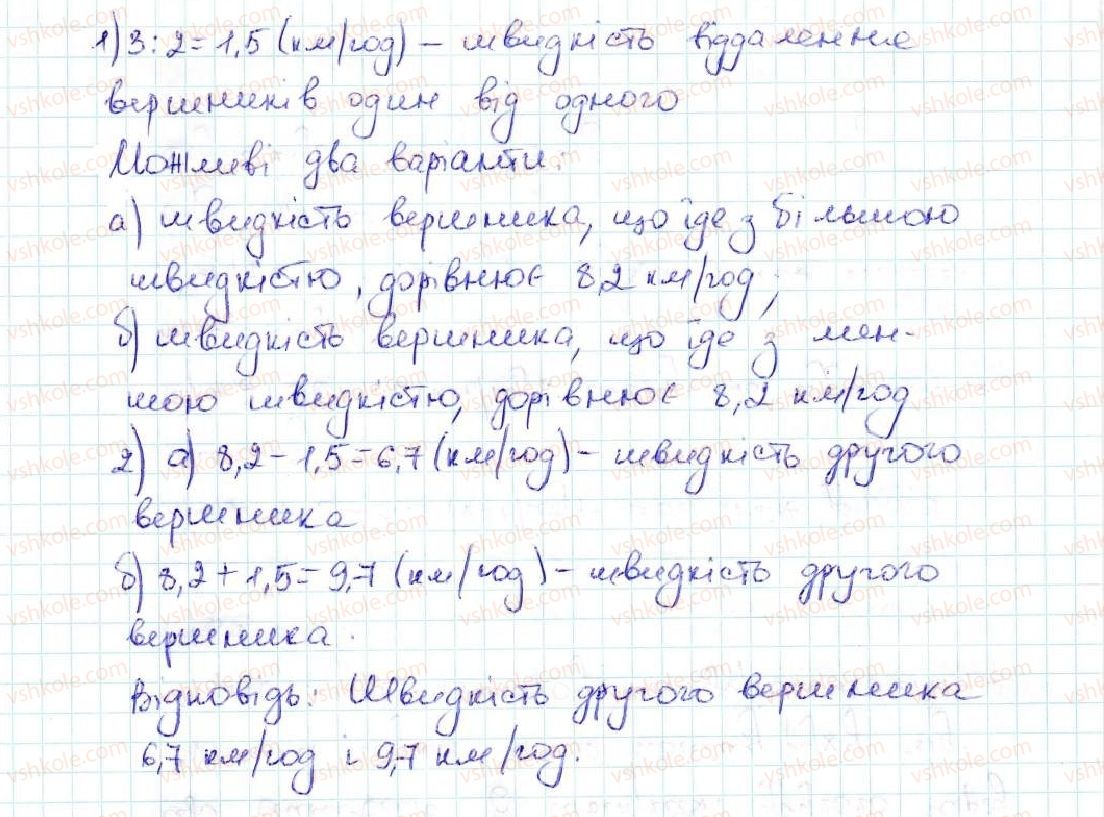 1) 3 : 2 = 1,5 (км/год) – швидкість віддалення
вершників один від одного
Можливі два варіанти:
а) швидкість вершника, що їде з більшою
швидкістю, дорівнює 8,2 км/год;
б) швидкість вершника, що їде з мен-
шою швидкістю, дорівнює 8,2 км/год
2) а) 8,2 – 1,5 = 6,7 (км/год) – швидкість другого
вершника
б) 8,2 + 1,5 = 9,7 (км/год) – швидкість другого
вершника.
Відповідь: Швидкість другого вершника
6,7 км/год і 9,7 км/год.